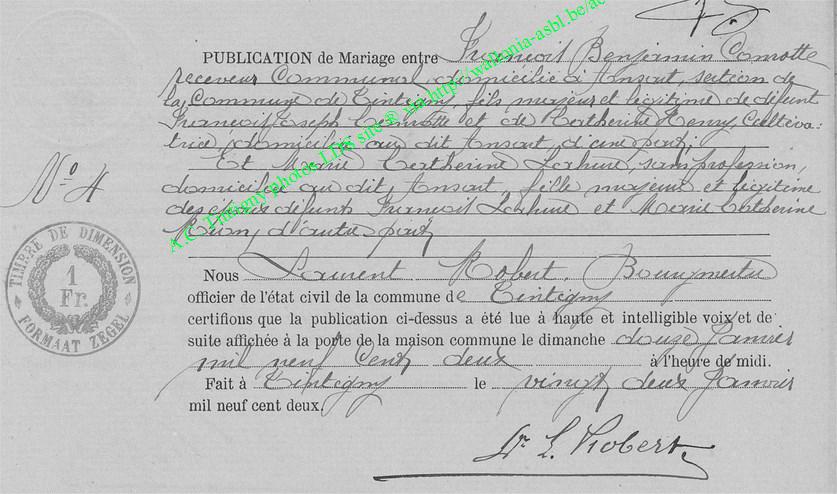 PUBLICATION de Mariage entre François Benjamin Comotte
receveur Communal, domicilié à Ansart, section de
la Commune de Tintigny, fils majeur et légitime de défunt
François Joseph Comotte et de Catherine Henry, Cultiva-
trice, domiciliée au dit Ansart, d'une part,
Et Marie Catherine Lahure, sans profession,
domiciliée au dit Ansart, fille majeure et légitime
des défunts François Lahure et Marie Catherine
d'autre part
N° 4
TIMBRE DE DIMENSION
1
Fr.
FORMAAT ZEGEL
Nous Laurent Robert, Bourgmestre
officier de l'état civil de la commune de Tintigny
certifions que la publication ci-dessus a été lue à haute et intelligible voix et de
suite affichée à la porte de la maison commune le dimanche douze Janvier
mil neuf Cent deux à l'heure de midi.
Fait à Tintigny le vingt deux Janvier
mil neuf cent deux.
Dr L. Robert
A.C. Tintigny photos LDS site ® via http://wallonia-asbl.be/ac